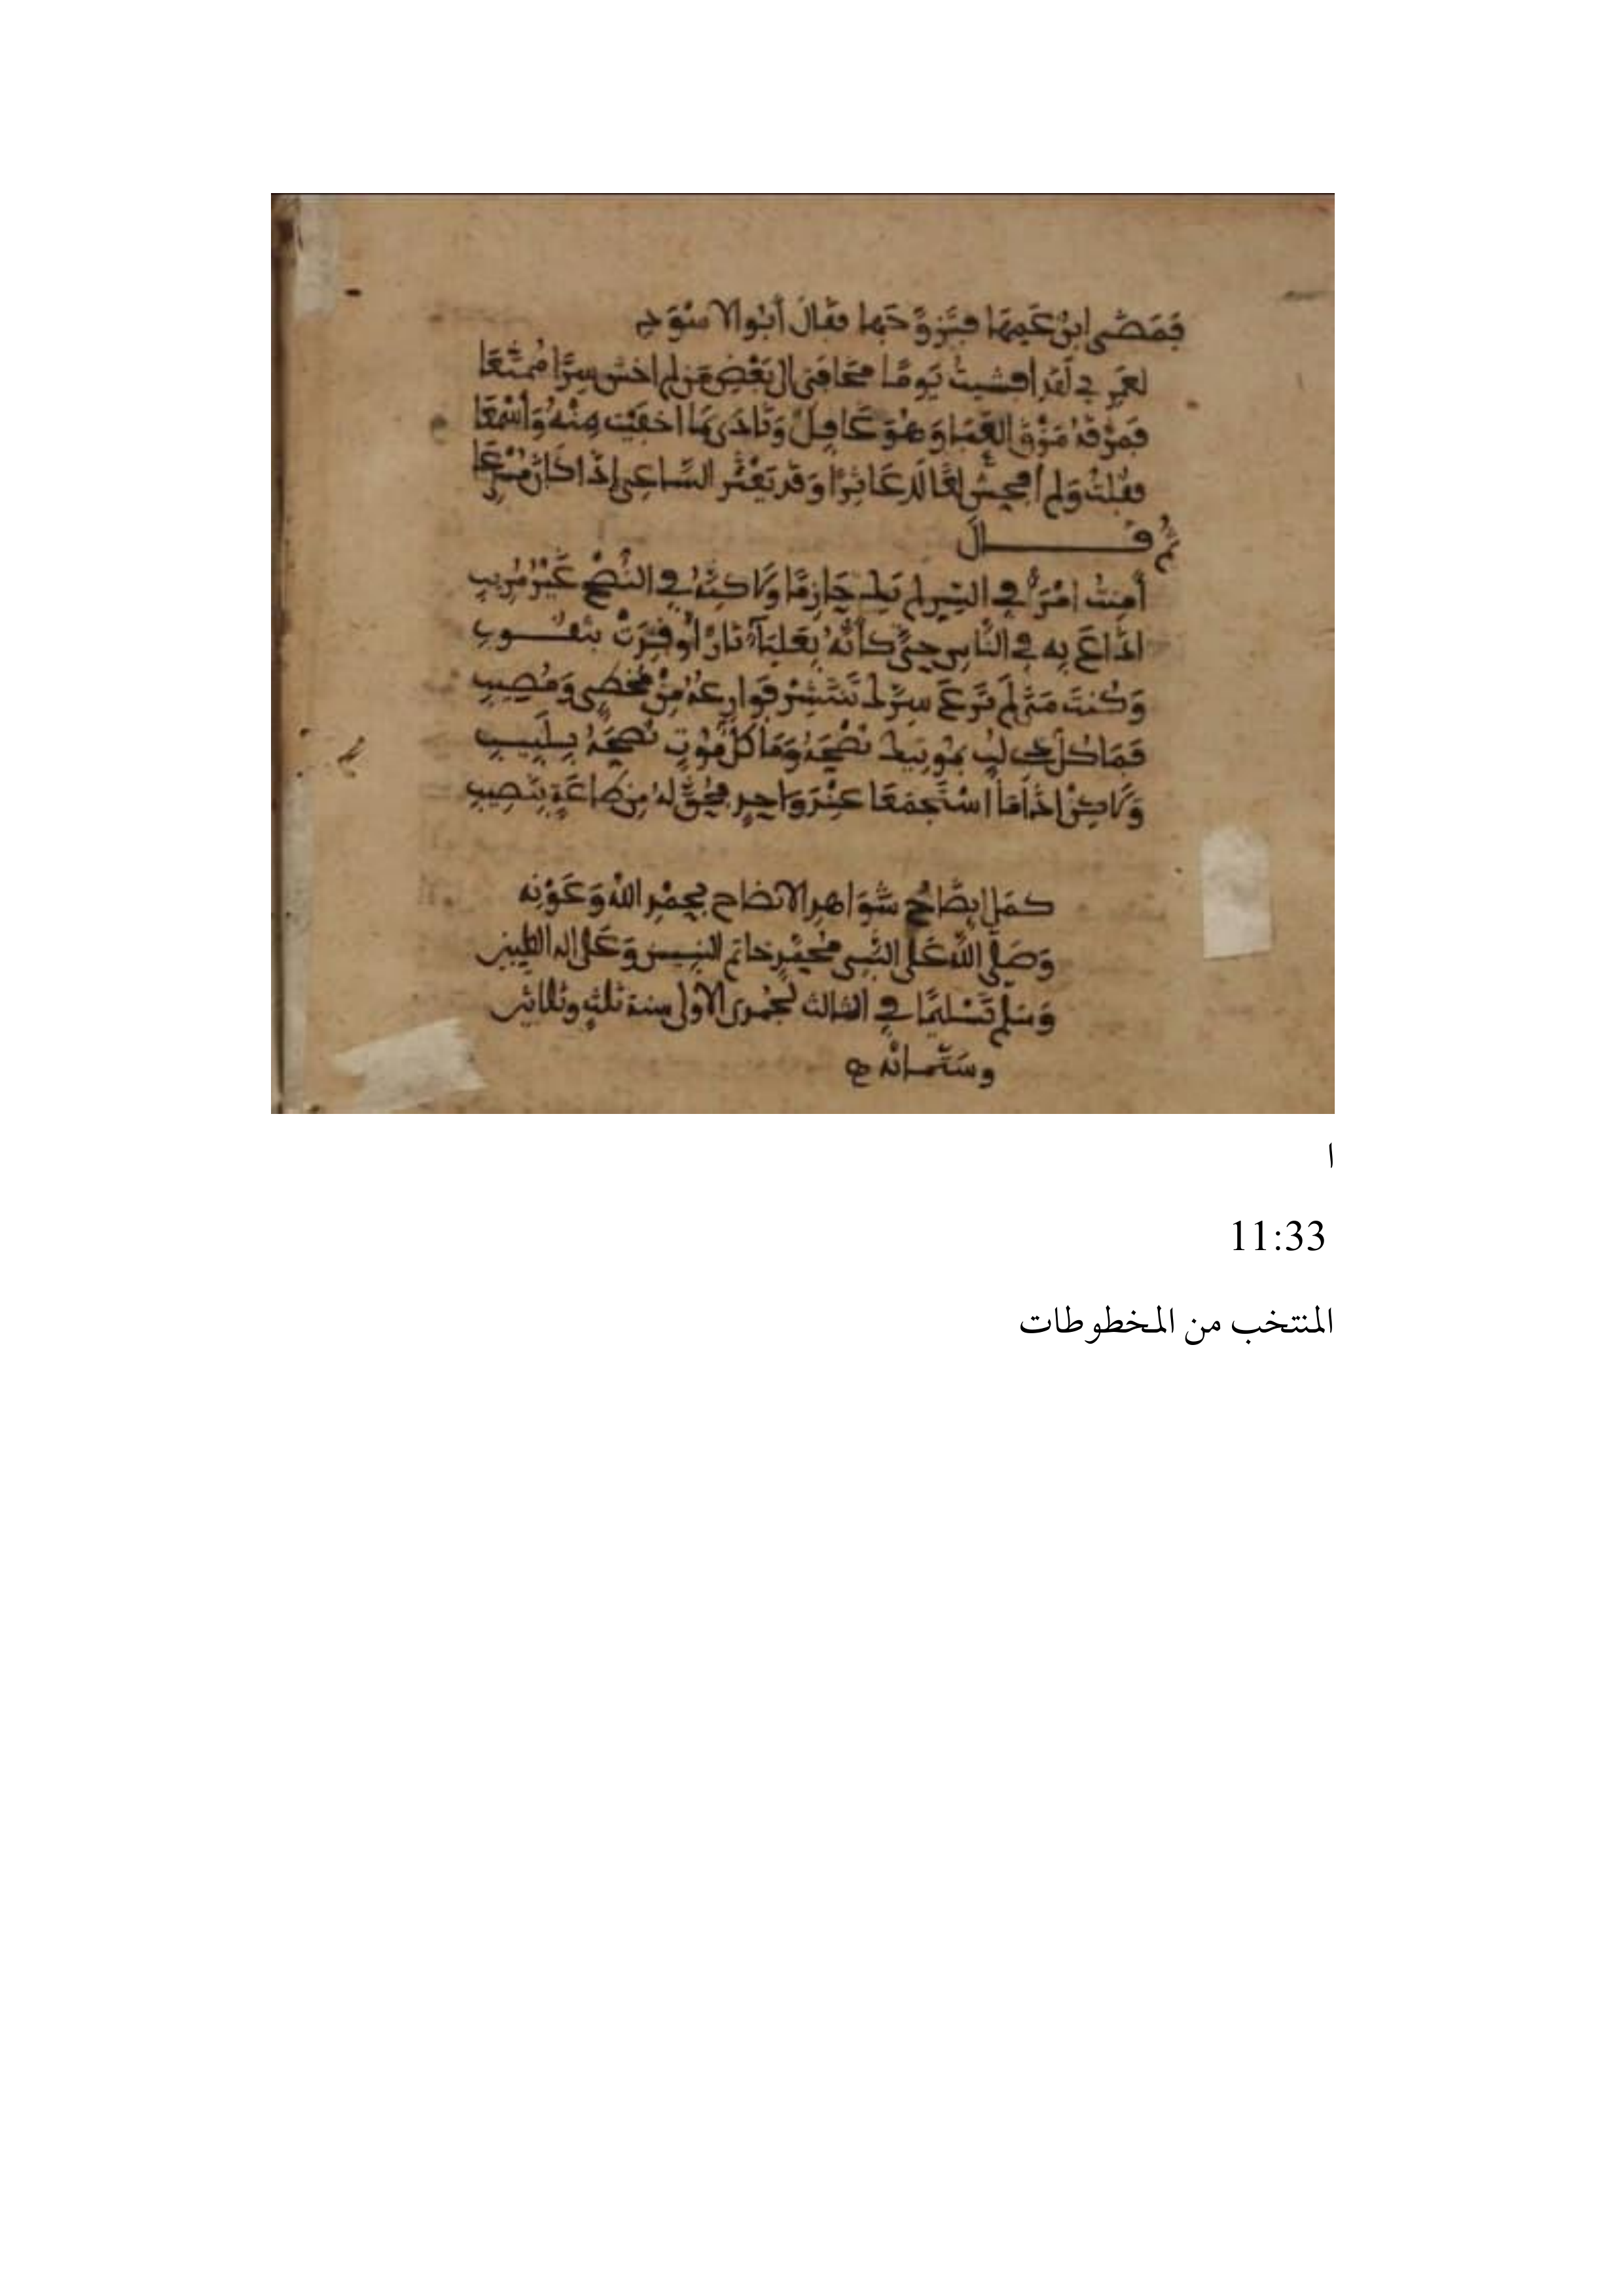 فَمَضَى ابنُ عَمِهَا فتَزَوَّجَهَا فقَالَ أبُو الاسْوَدِ
لعَمرِي لَقَد افشيتُ يَومًا فخَافَنِى الى بَعْضِ مَن لم اخشَ سِرًّا مُمَنَّعَا
فَمَزَّقَهُ مَزْقَ العَمَا وَهْوَ غَافِلٌ وَنَادَى بمَا اخفَيْتُ مِنْهُ وَأَسْمَعَا
فقُلتُ وَلم أفحِش لعًا لَك عَاثِرًا وَقَد يَعْثُرُ السَّاعِى إذَا كَانَ مُسْرِعَا
ثُم قَالَ
أَمِنتُ امْرَأً فِي السِّرِ لم يَكُ حَازِمًا وَلاكِنَّهُ فِي النُّصْحِ غَيْرُ مُرِيبِ
اذَاعَ بِهِ فِي النَّاسِ حَتَّى كأَنَّهُ بِعَليَآءَ نَارٌ أُوقِدَتْ بثَقُوبِ
وَكُنتَ مَتَى لَم تَرعَ سِرَّكَ تَنْتَشِرْ قَوَارِعُهُ مِنْ مُخطِىٍ وَمُصِيبِ
فَمَا كُل ذِى لبٍ بمُوتِيكَ نُصْحَهُ وَمَا كُلُّ مُوتٍ نُصْحَهُ بِلَبِيبِ
وَلاكِنْ اذَا مَا اسْتُجمِعَا عِنْدَ وَاحِدٍ فحُقَّ لهُ مِن طَاعَةٍ بِنَصِيبِ
كمَل إيضَاحُ شَوَاهِدِ الايضَاحِ بحَمْدِ اللهِ وَعَوْنِه
وَصَلَّى اللهُ عَلَى النَّبِى مُحَمَّدٍ خاتمِ النبِيين وَعَلَى اله الطيِّبِين
وَسَلم تَسْلِيمًا فِي الثالث لجُمدى الاولى سنة ثلثٍ وثلاثين
وسِتَّمـائه
ا
11:33
المنتخب من المخطوطات